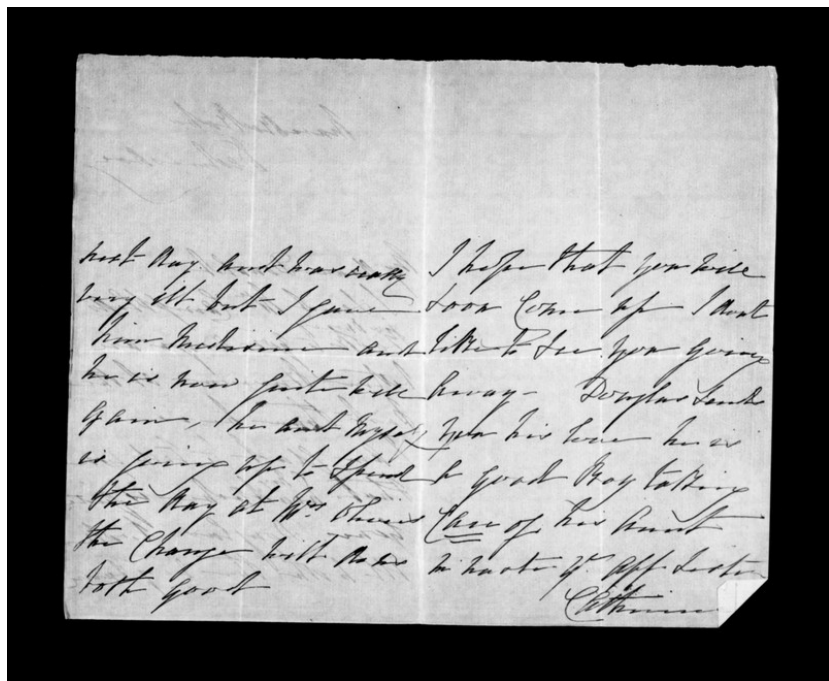 next day and was really
very ill but I gave
him medicine and
he is now quite well
again, he and myself
is going up to Spend
the day at Mrs
the Change will do us
both good
I hope that you will
soon Come up I dont
like to See you going
away - Douglas Sends
you his love he is
a good Boy taking
Care of his Aunt
in haste yr aff Sister
Catherine